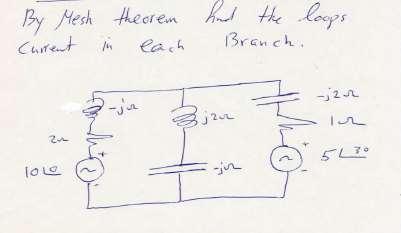 By Mesh theorem find the loops
Current in each Branch.
-jΩ
j2Ω
-j2Ω
1Ω
2Ω
+
10∠0
-
-jΩ
+
5∠30
-